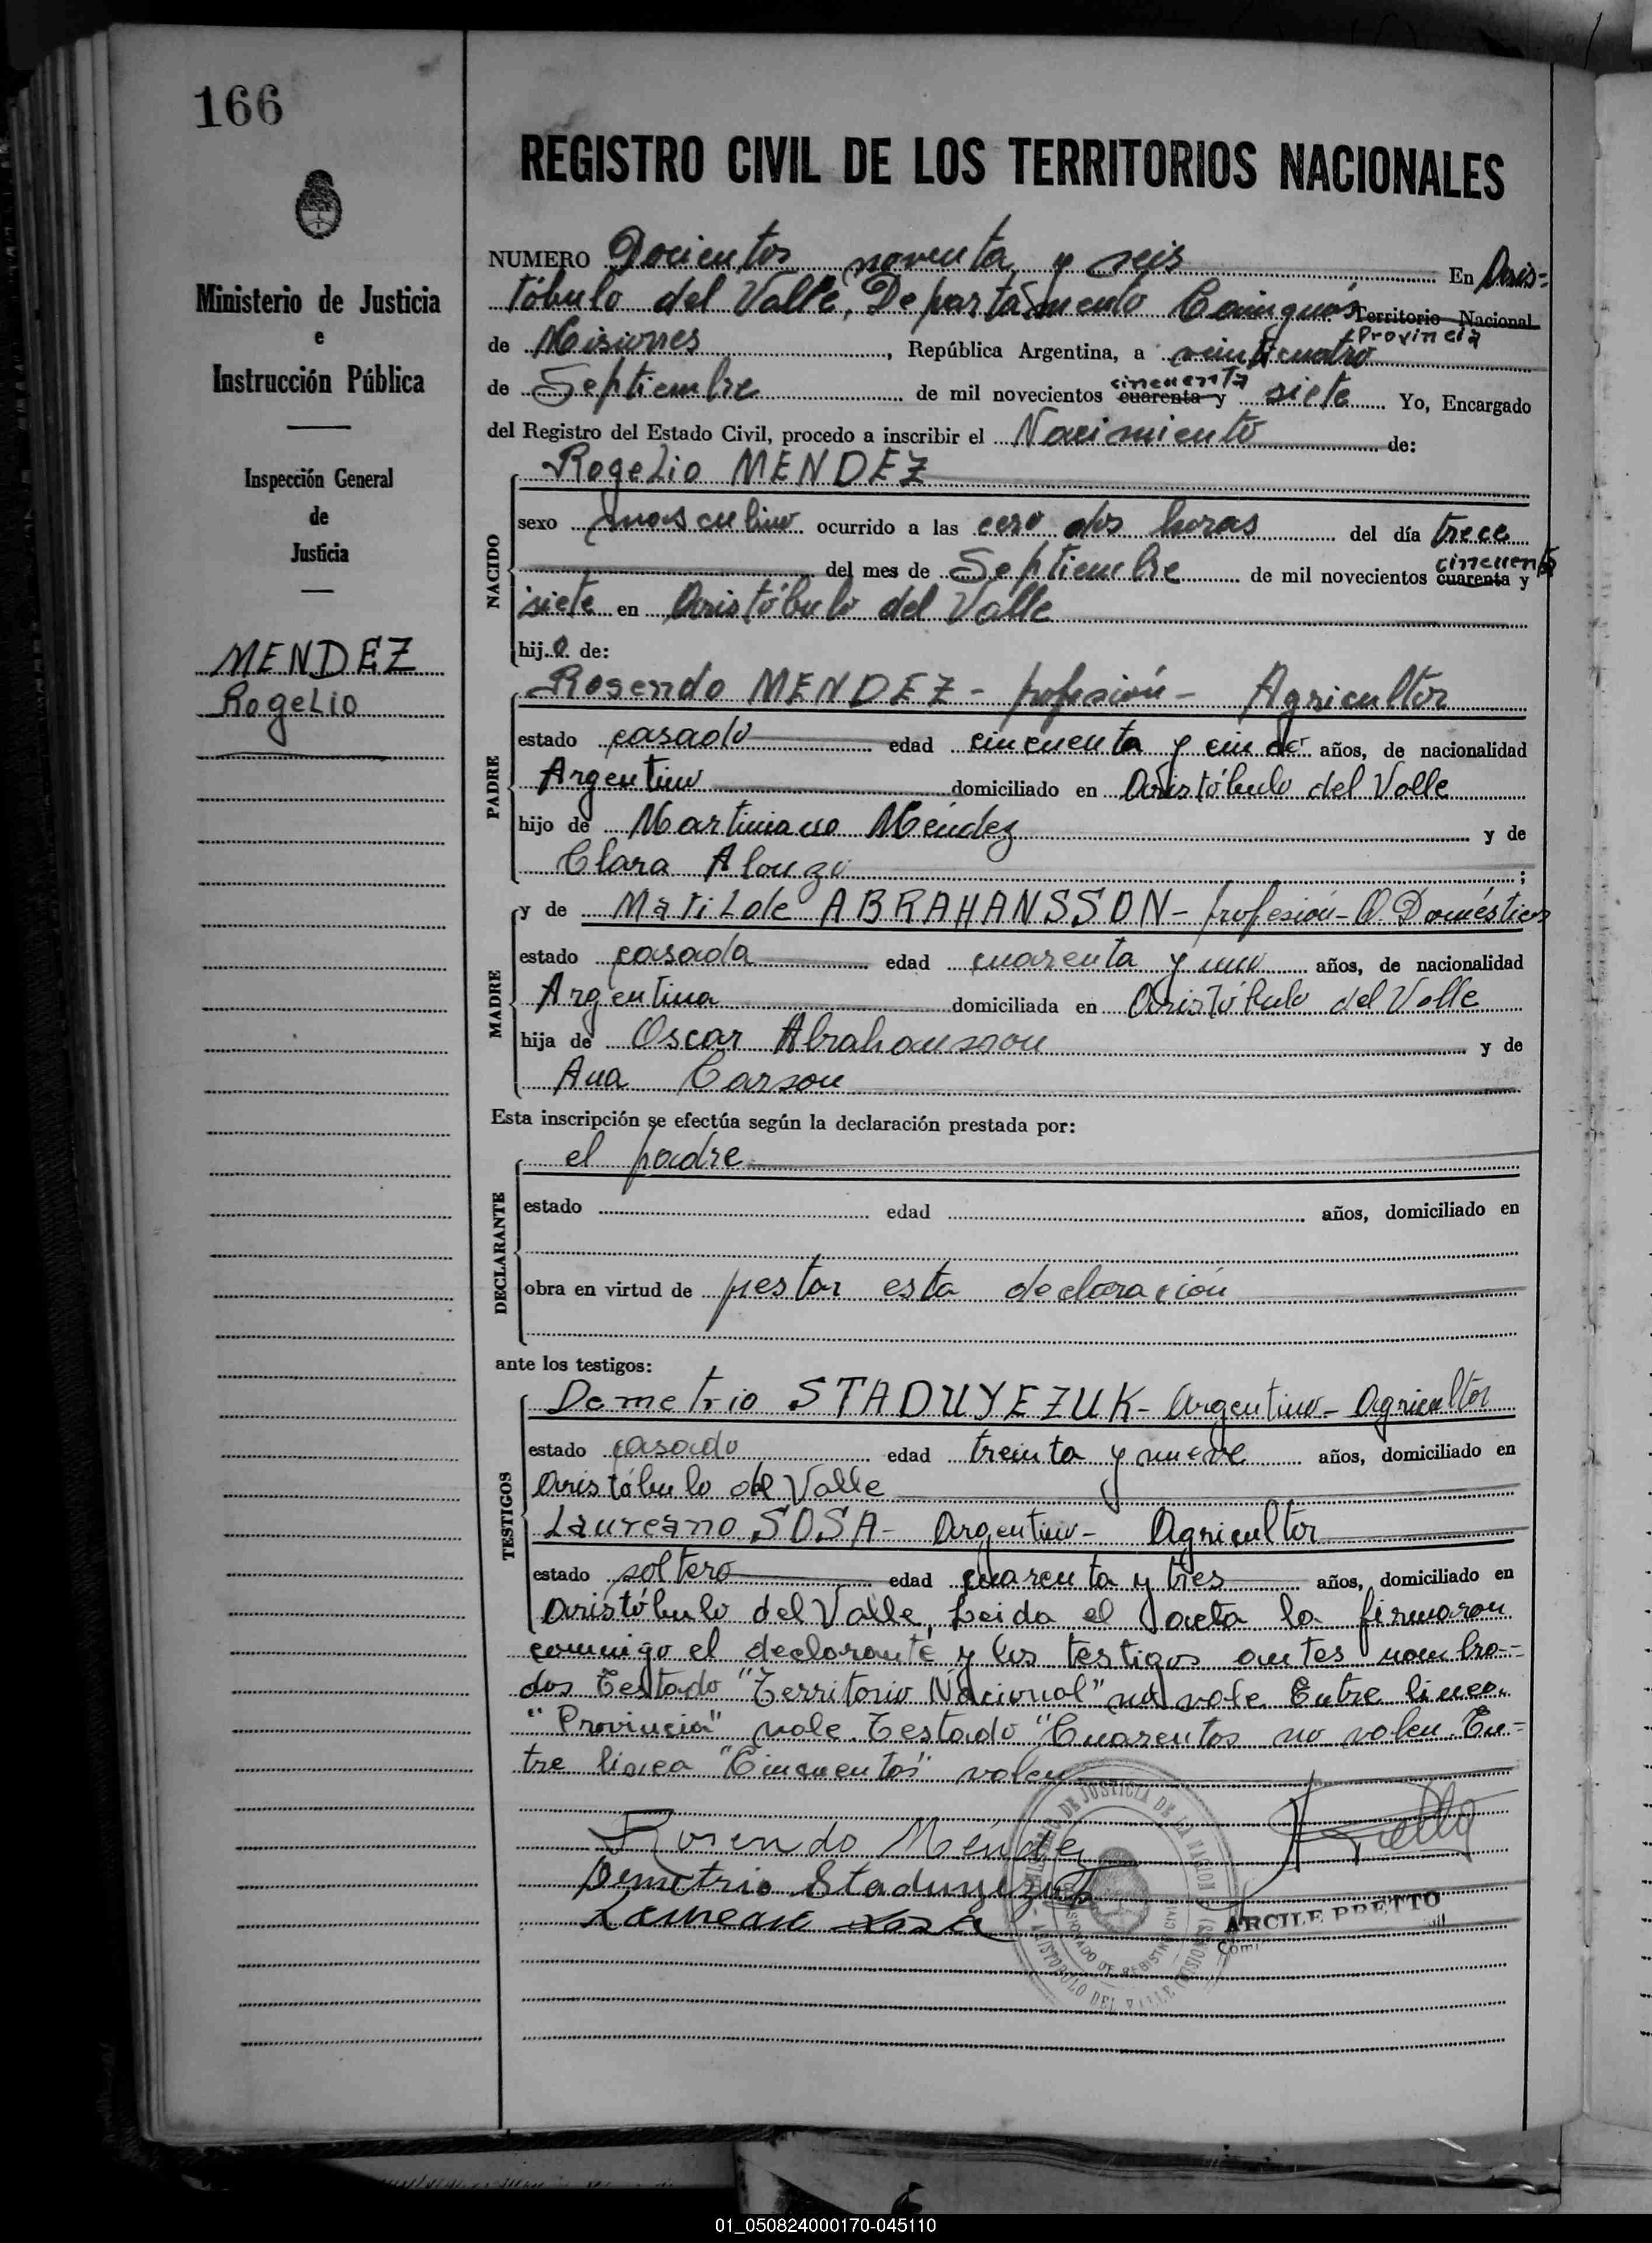 166
Ministerio de Justicia
e
Instrucción Pública
Inspección General
de
Justicia
MENDEZ
Rogelio
REGISTRO CIVIL DE LOS TERRITORIOS NACIONALES
NUMERO Docientos noventa y seis En Aris=
tóbulo del Valle, Departamento Cainguás Territorio Nacional
Provincia
de Misiones, República Argentina, a veinticuatro
de Septiembre de mil novecientos cuarenta y cincuenta siete Yo, Encargado
del Registro del Estado Civil, procedo a inscribir el Nacimiento de:
Rogelio MENDEZ
NACIDO
sexo masculino ocurrido a las cero dos horas del día trece
cincuenta
del mes de Septiembre de mil novecientos cuarenta y
siete en Aristóbulo del Valle
hijo de:
PADRE
Rosendo MENDEZ - profesión - Agricultor
estado casado edad cincuenta y cinco años, de nacionalidad
Argentino domiciliado en Aristóbulo del Valle
hijo de Martiniano Méndez y de
Clara Alonzo;
MADRE
y de Matilde ABRAHANSSON - profesión - Q. Domésticos
estado casada edad cuarenta y uno años, de nacionalidad
Argentina domiciliada en Aristóbulo del Valle
hija de Oscar Abrahansson y de
Ana Carson
Esta inscripción se efectúa según la declaración prestada por:
DECLARANTE
el padre
estado edad años, domiciliado en
obra en virtud de pestar esta declaración
ante los testigos:
TESTIGOS
Demetrio STADUYEZUK - Argentino - Agricultor
estado casado edad treinta y nueve años, domiciliado en
Aristóbulo del Valle
Laureano SOSA - Argentino - Agricultor
estado soltero edad cuarenta y tres años, domiciliado en
Aristóbulo del Valle, Leida el acta la firmaron
conmigo el declarante y los testigos antes nombra=
dos Testado "Territorio Nacional" no vale Entre linea
"Provincia" vale. Testado "Cuarentas no valen. En=
tre linea "Cincuentas" valen
Rosendo Méndez
Demetrio Staduyezuk
Laureano Sosa
DE JUSTICIA DE LA NACION
DE REGISTRO CIVIL
ARISTOBULO DEL VALLE (MISIONES)
ARCILE PRETTO
01_050824000170-045110